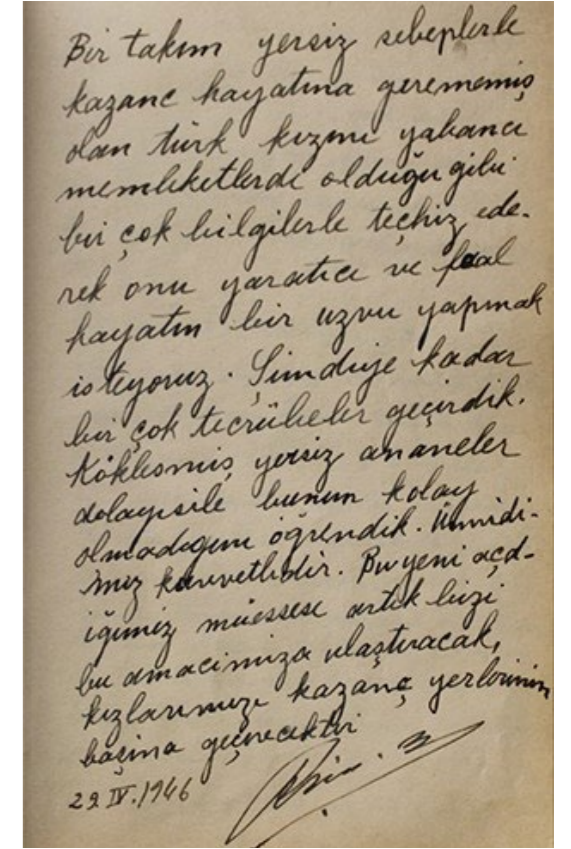 Bir takım yersiz sebeplerle
kazanc hayatına gerememiş
olan türk kızını yabancı
memleketlerde olduğu gibi
bir çok bilgilerle teçhiz ede-
rek onu yaratıcı ve faal
hayatın bir uzvu yapmak
isteyoruz. Şimdiye kadar
bir çok tecrübeler geçirdik.
Kökleşmiş yersiz ananeler
dolayısile bunun kolay
olmadığını öğrendik. Ümidi-
miz kuvvetlidir. Bu yeni açd-
iğimiz müessese artık bizi
bu amacimiza ulaştıracak,
kızlarımızı kazanç yerlerinin
başına geçirecektir
29 IV. 1946